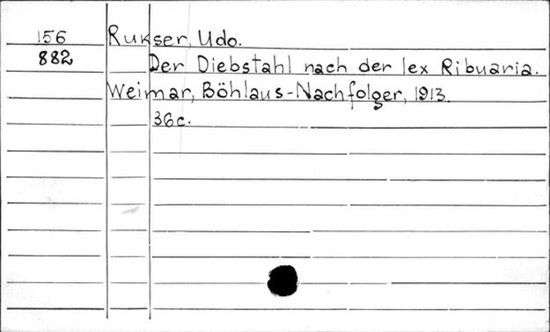 156 Rukser, Udo.
882 Der Diebstahl nach der lex Ribuaria.
Weimar, Böhlaus-Nachfolger, 1913.
36c.